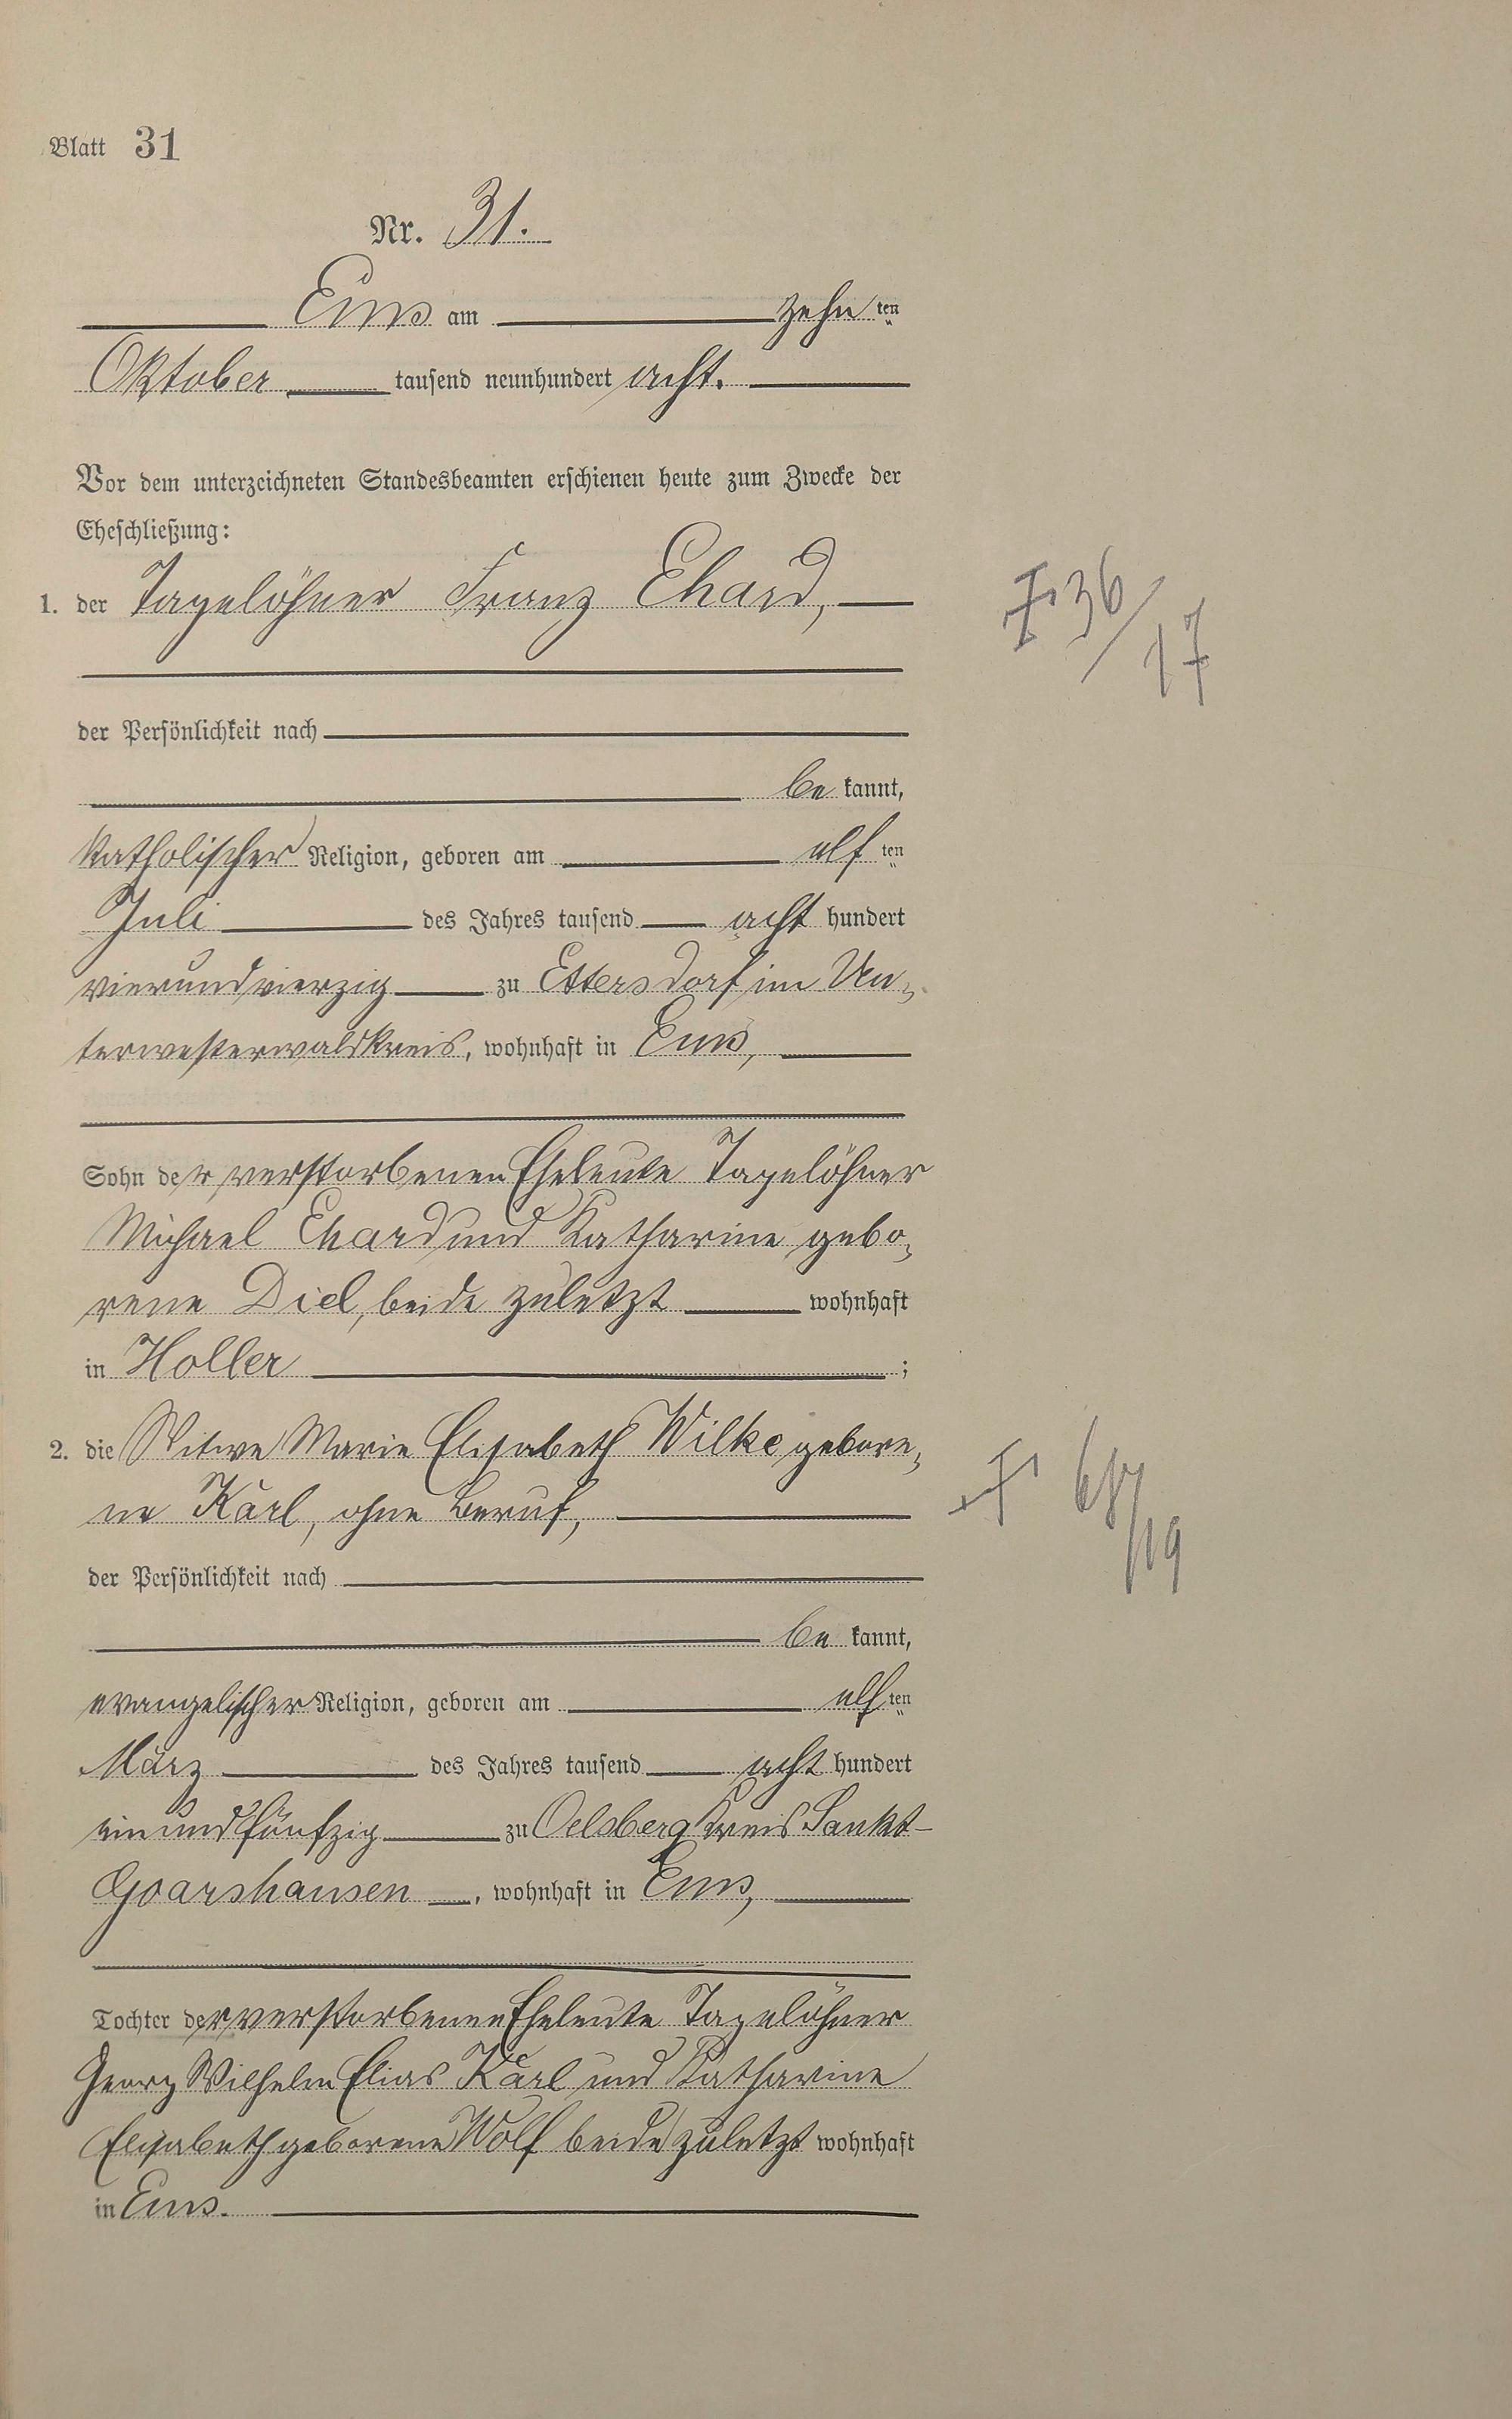 Blatt 31
Nr. 31.
Ems am zehnten
Oktober tausend neunhundert acht.
Vor dem unterzeichneten Standesbeamten erschienen heute zum Zwecke der
Eheschließung:
1. der Tagelöhner Franz Ehard,
36/17
der Persönlichkeit nach
be kannt,
katholischer Religion, geboren am elf ten
Juli des Jahres tausend acht hundert
vierundvierzig zu Ettersdorf im Un-
terwesterwaldkreis, wohnhaft in Ems,
Sohn der verstorbenen Eheleute Tagelöhner
Michael Ehard und Katharine gebo-
rene Diel, beide zuletzt wohnhaft
in Holler ;
2. die Witwe Marie Elisabeth Wilke gebore-
ne Karl, ohne Beruf,
/19
der Persönlichkeit nach
be kannt,
evangelischer Religion, geboren am elf ten
März des Jahres tausend acht hundert
einundfünfzig zu Oelsberg Kreis Sankt-
Goarshausen, wohnhaft in Ems,
Tochter der verstorbenen Eheleute Tagelöhner
Georg Wilhelm Elias Karl und Katharine
Elisabeth geborene Wolf beide zuletzt wohnhaft
in Ems.